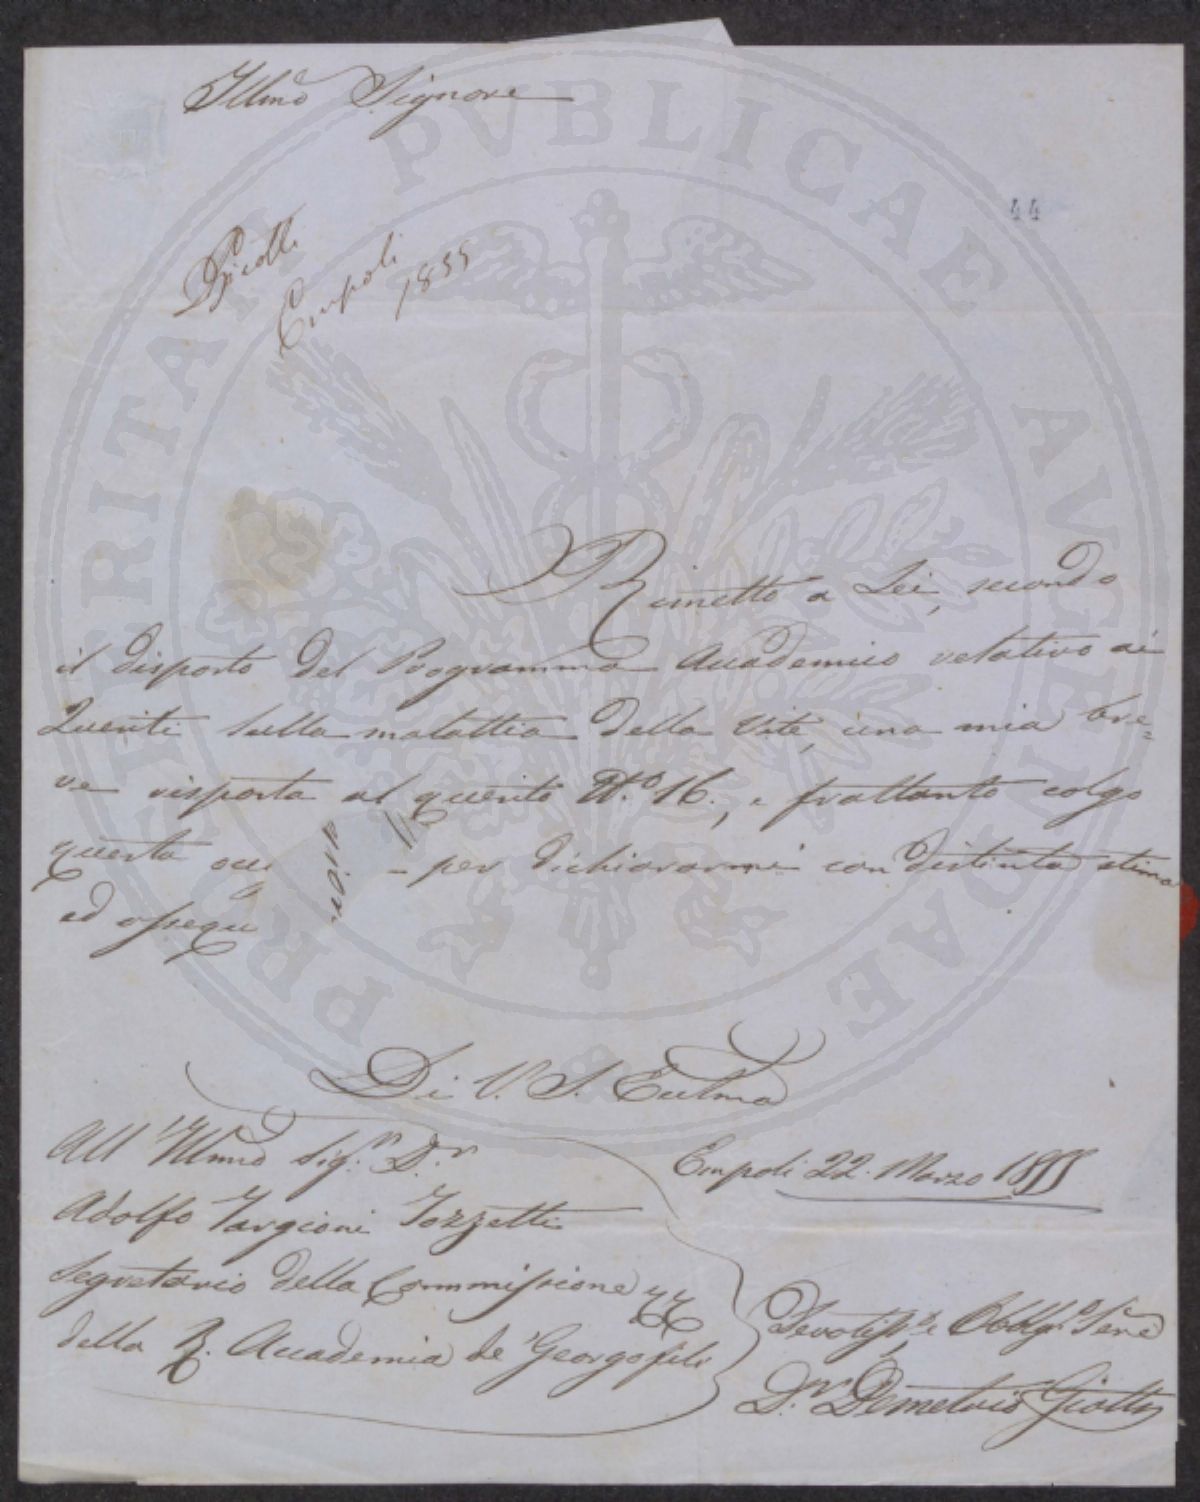 Illmo Signore
44
Empoli
1855
Rimetto a Lei, secondo
il disposto del Programma Accademico relativo ai
Quesiti sulla malattia della Vite, una mia bre=
ve risposta al quesito N.º 16., e frattanto colgo
questa occ per dichiararmi con distinta stima
ed ossequi
Di V. S. Eccma
All'Illmo Sig.r D.r
Adolfo Targioni Tozzetti
Segretario della Commissione
della R. Accademia de' Georgofili
Empoli 22. Marzo 1855
Devotiss.o e Obblg.o Serv
D.r Demetrio Giotti
PROSPERITATI PVBLICAE AVGENDAE